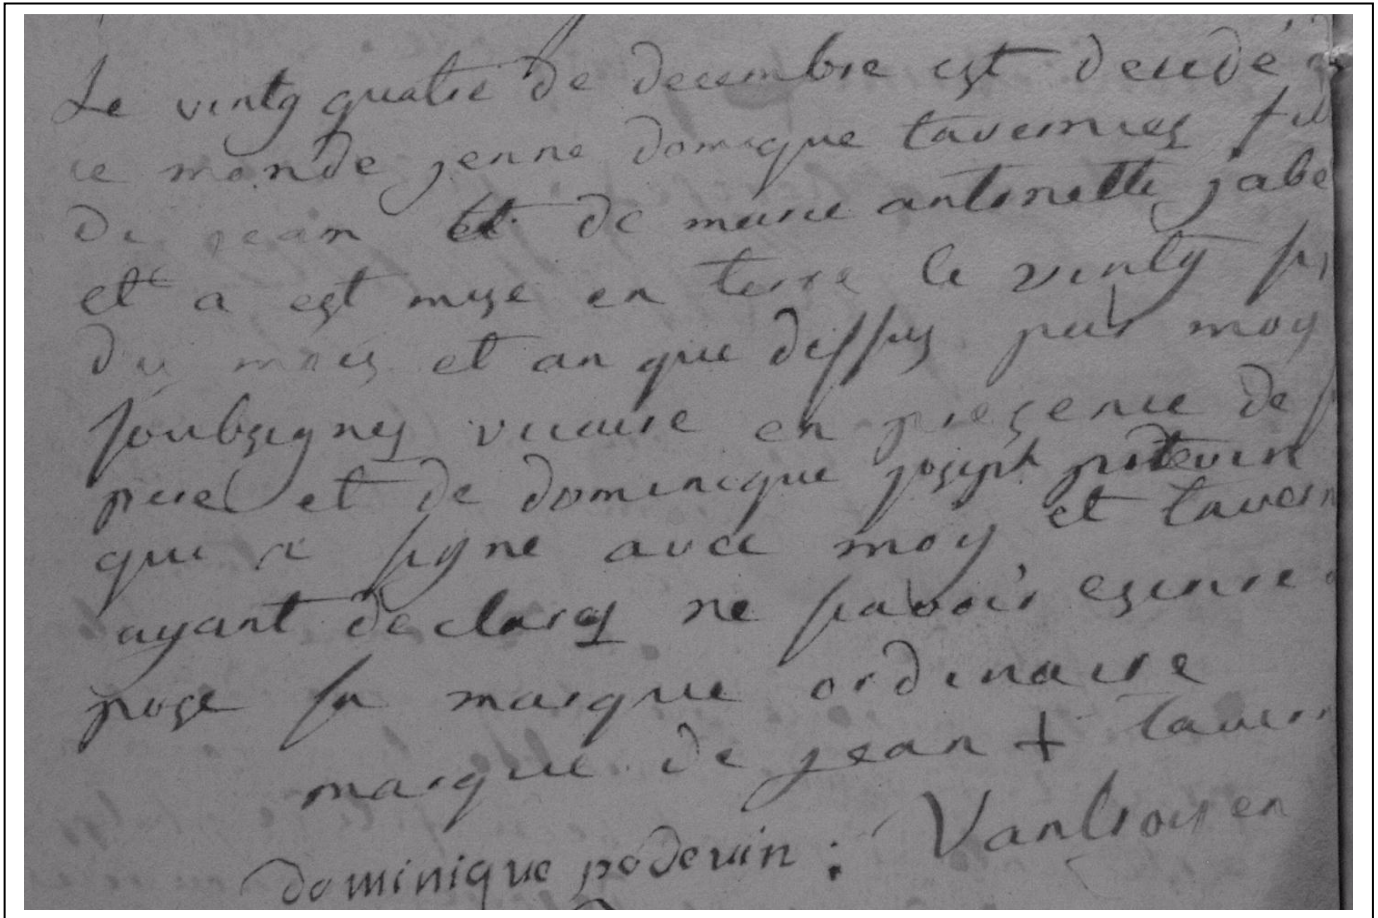 Le vingt quatre de decembre est decedé
ce monde jenne domique taverniez
du jean et de marie antonette jabe
et a est myse en terre le vingt
du mois et an que dessus par moy
soubsigney vicaire en presence de
pere et de dominique joseph potevin
qui a signe avec moy et tavern
ayant declarez ne scavoir escrire
pose sa marque ordinaire
marque de jean + taver
dominique podevin :